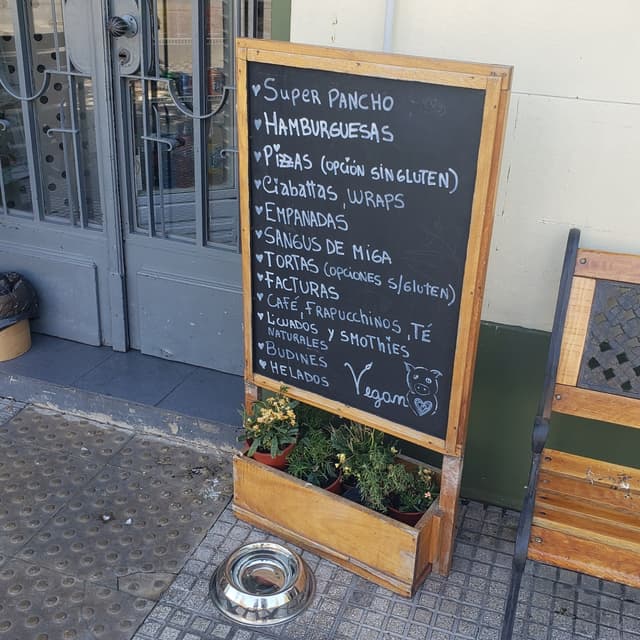 ♥ Super PANCHO
♥ HAMBURGUESAS
♥ Pizzas (opción sin gluten)
♥ Ciabattas, WRAPS
♥ EMPANADAS
♥ SANGUS DE MiGA
♥ TORTAS (opciones s/gluten)
♥ FACTURAS
♥ CAFÉ, FRAPUCCHINOS, TÉ
♥ Licuados y SMOTHIES
NATURALES
♥ BUDINES
♥ HELADOS
Vegan